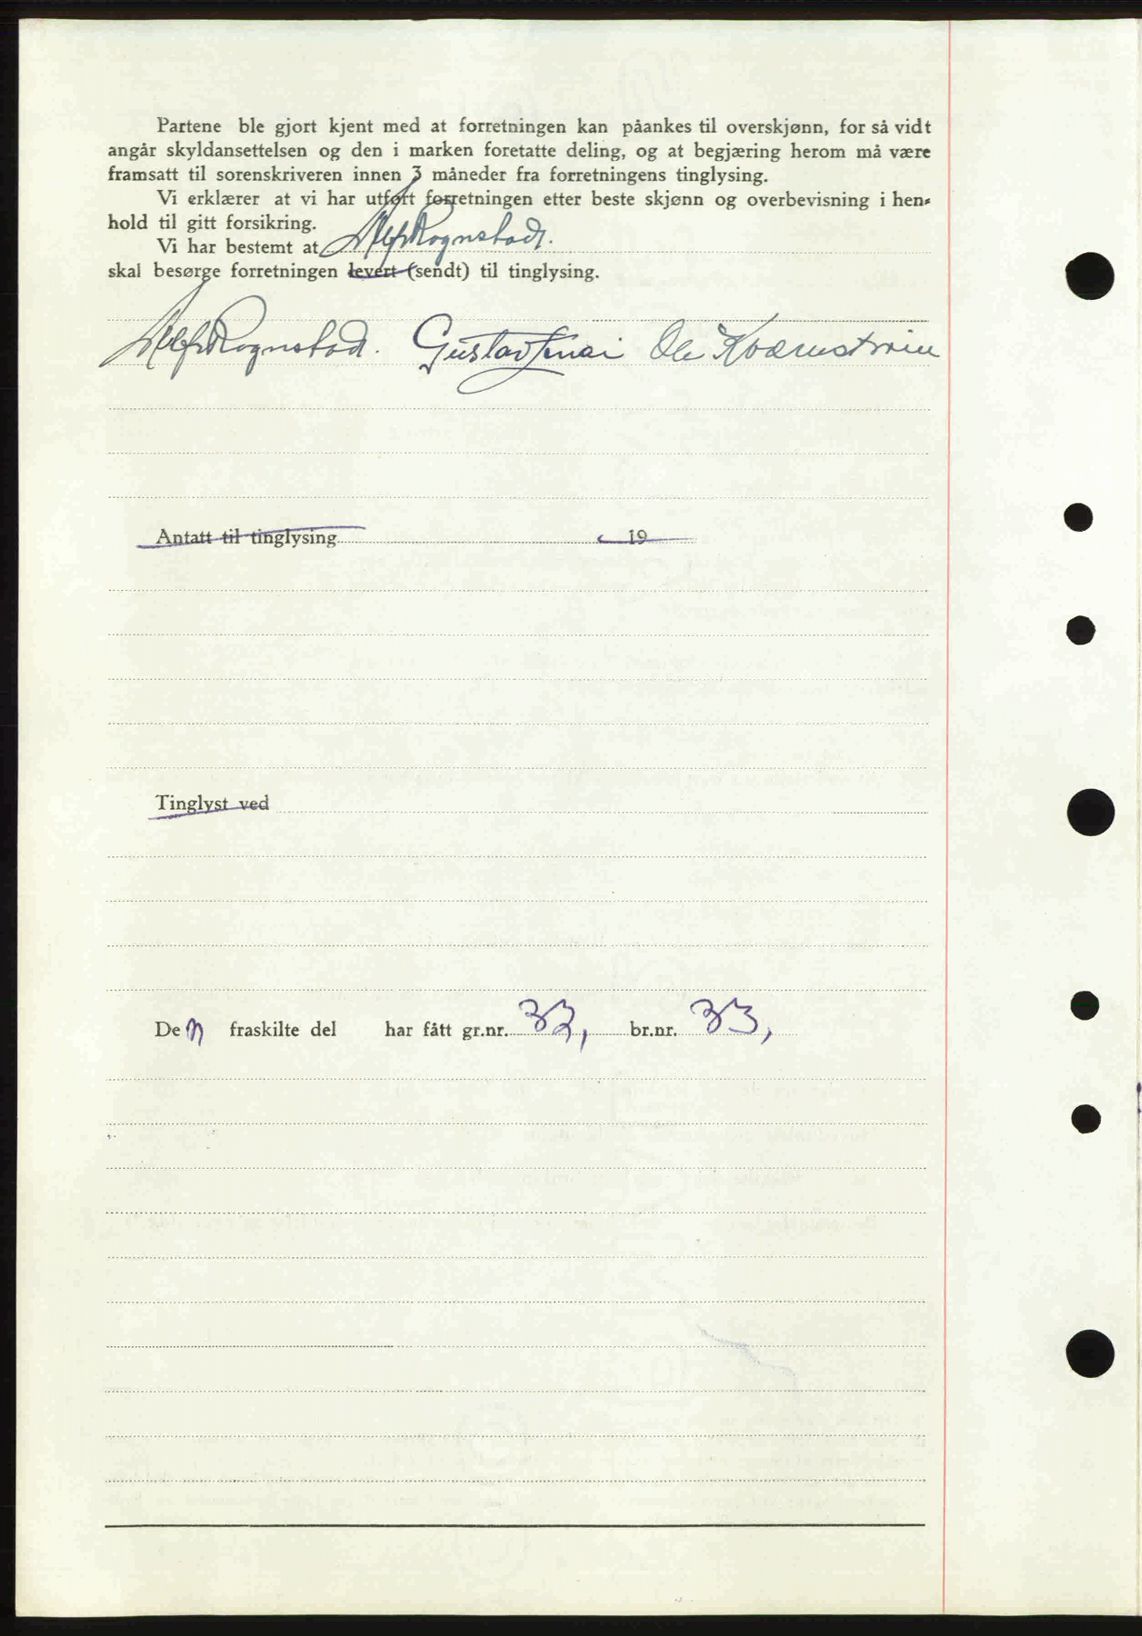 Partene ble gjort kjent med at forretningen kan påankes til overskjønn, for så vidt
angår skyldansettelsen og den i marken foretatte deling, og at begjæring herom må være
framsatt til sorenskriveren innen 3 måneder fra forretningens tinglysing.
Vi erklærer at vi har utført forretningen etter beste skjønn og overbevisning i hen-
hold til gitt forsikring.
Vi har bestemt at Alf Rognstad.
skal besørge forretningen levert (sendt) til tinglysing.
Alf Rognstad. Gustav Ole Kværnstrøm
Antatt til tinglysing 19
Tinglyst ved
Den fraskilte del har fått gr.nr. 32, br.nr. 33,